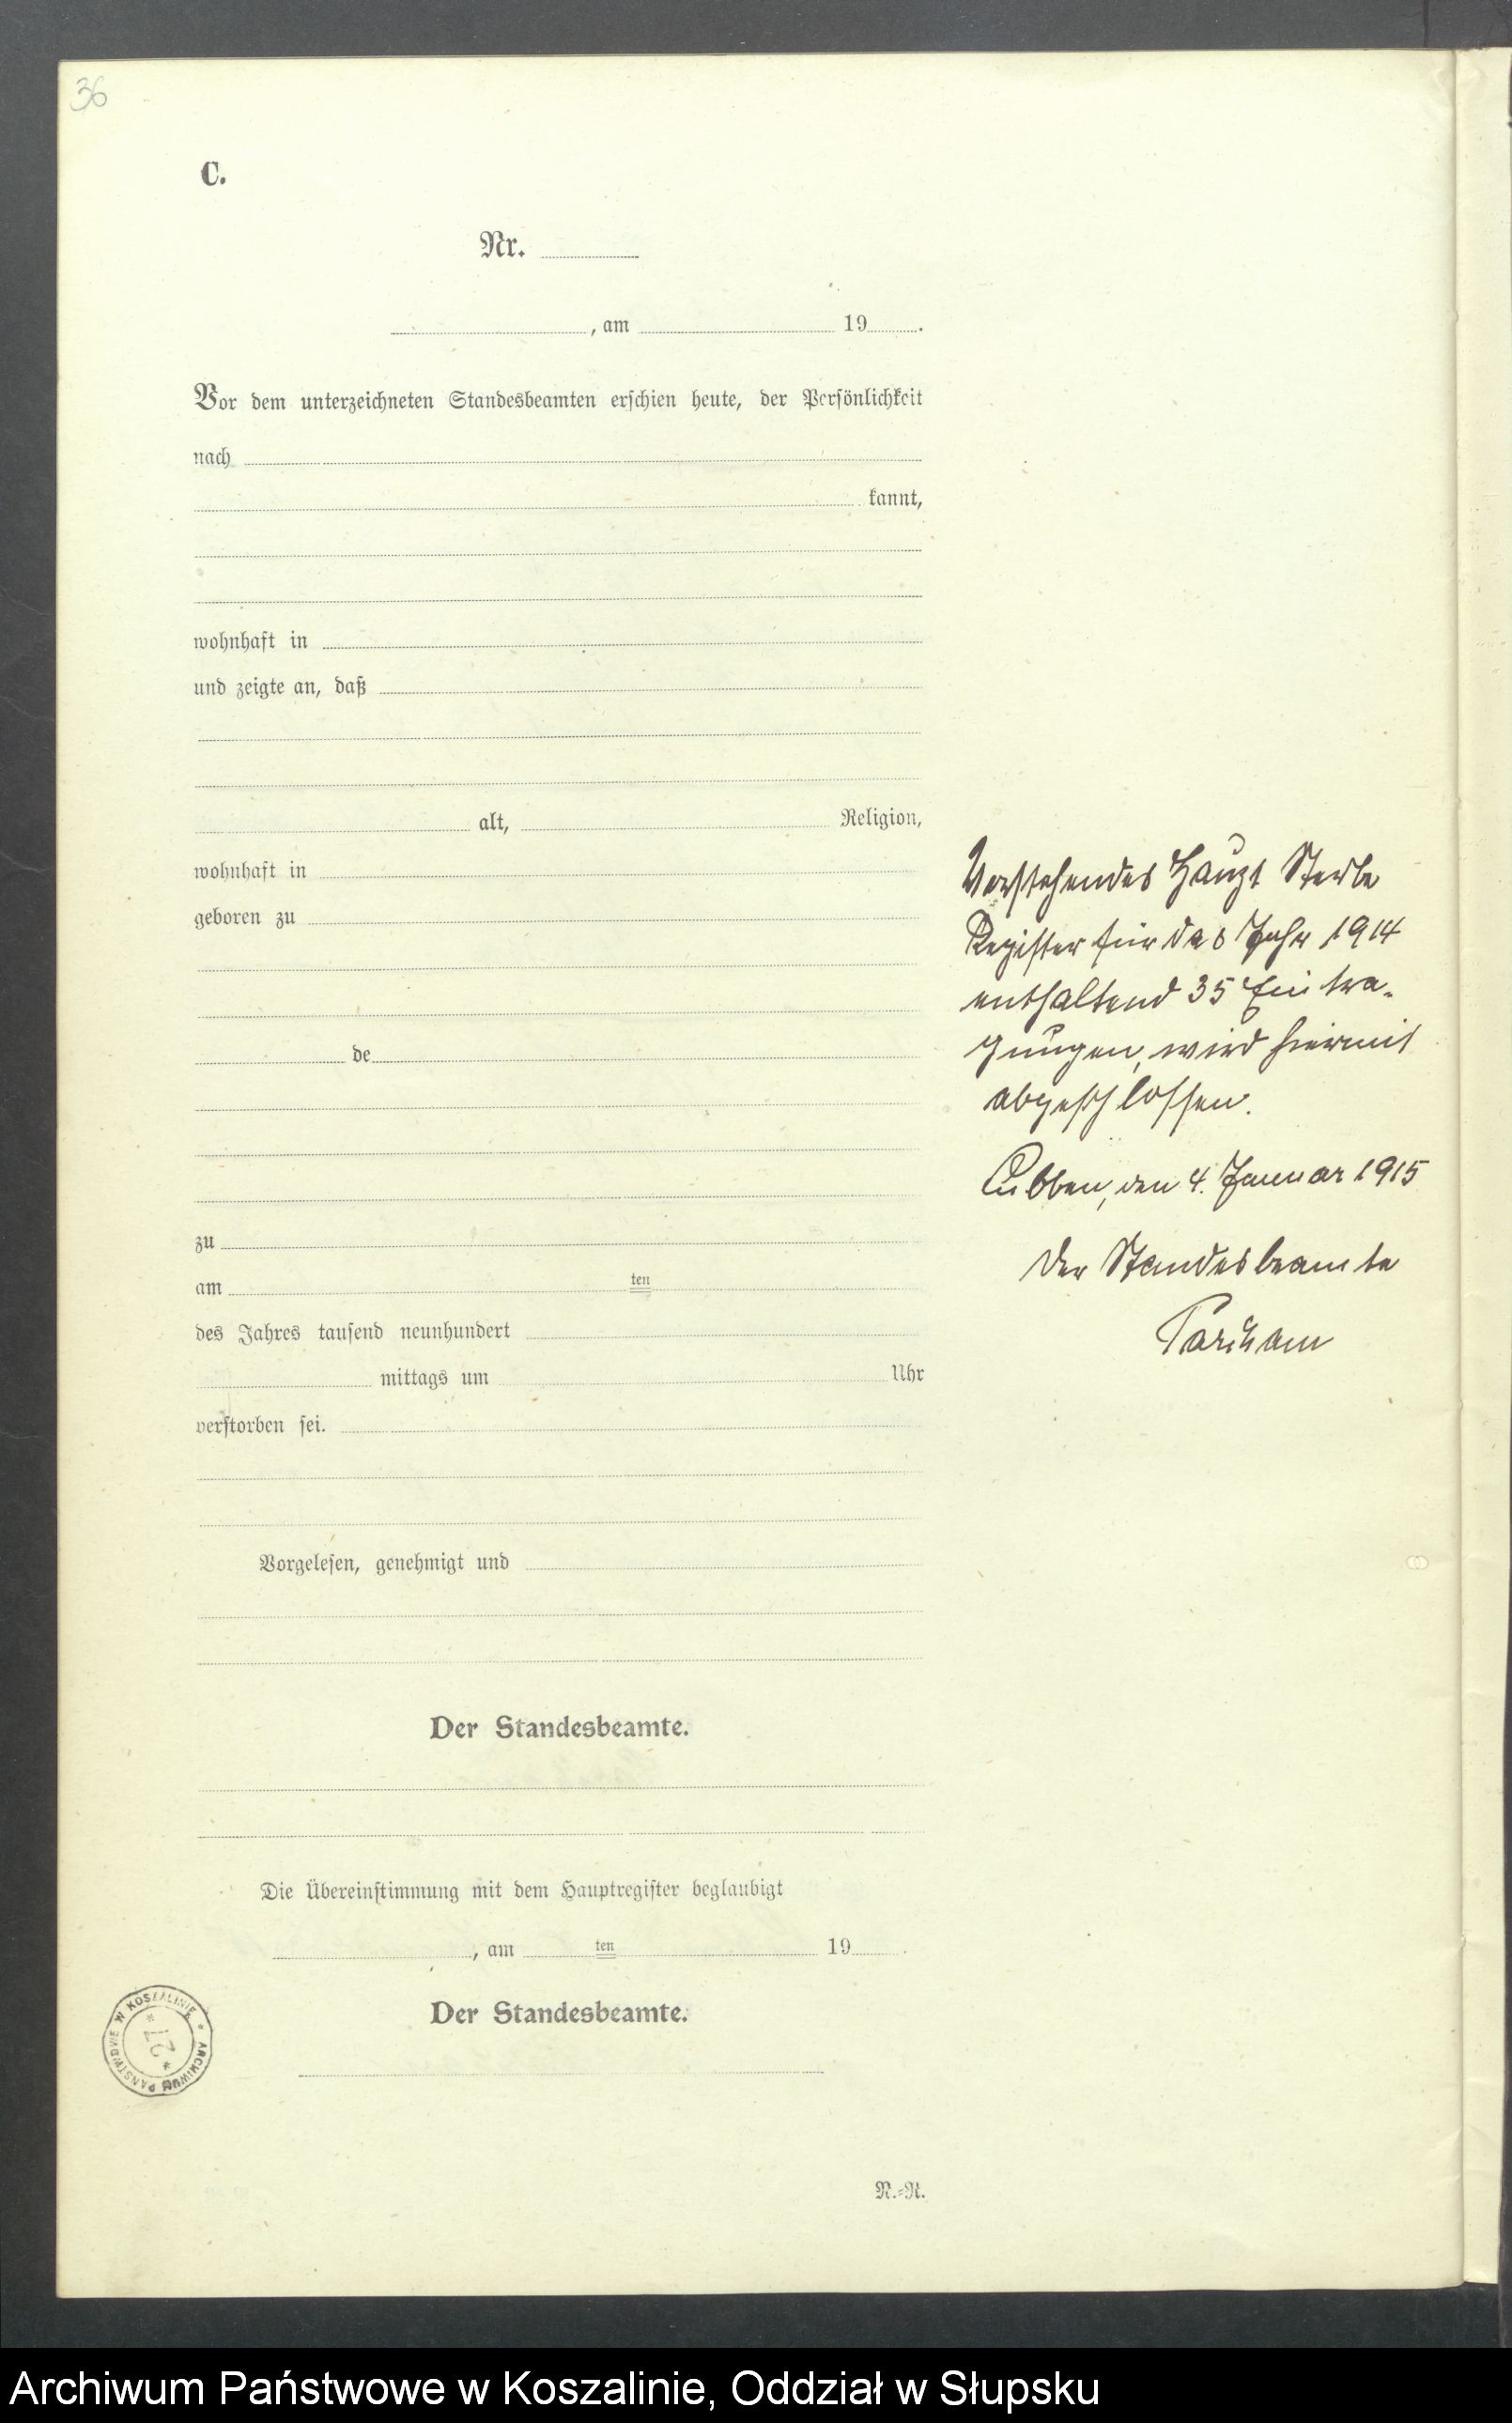 36
C.
Nr.
, am 19 .
Vor dem unterzeichneten Standesbeamten erschien heute, der Persönlichkeit
nach
kannt,
wohnhaft in
und zeigte an, daß
alt, Religion,
wohnhaft in
geboren zu
de
zu
am ten
des Jahres tausend neunhundert
mittags um Uhr
verstorben sei.
Vorgelesen, genehmigt und
Der Standesbeamte.
Die Übereinstimmung mit dem Hauptregister beglaubigt
, am ten 19 .
Der Standesbeamte.
N.=R.
Vorstehendes Haupt Sterbe
Register für das Jahr 1914
enthaltend 35 Eintra-
gungen, wird hiermit
abgeschlossen.
Lubben, den 4. Januar 1915
Der Standesbeamte
ARCHIWUM PAŃSTWOWE W KOSZALINIE
* 27 *
Archiwum Państwowe w Koszalinie, Oddział w Słupsku